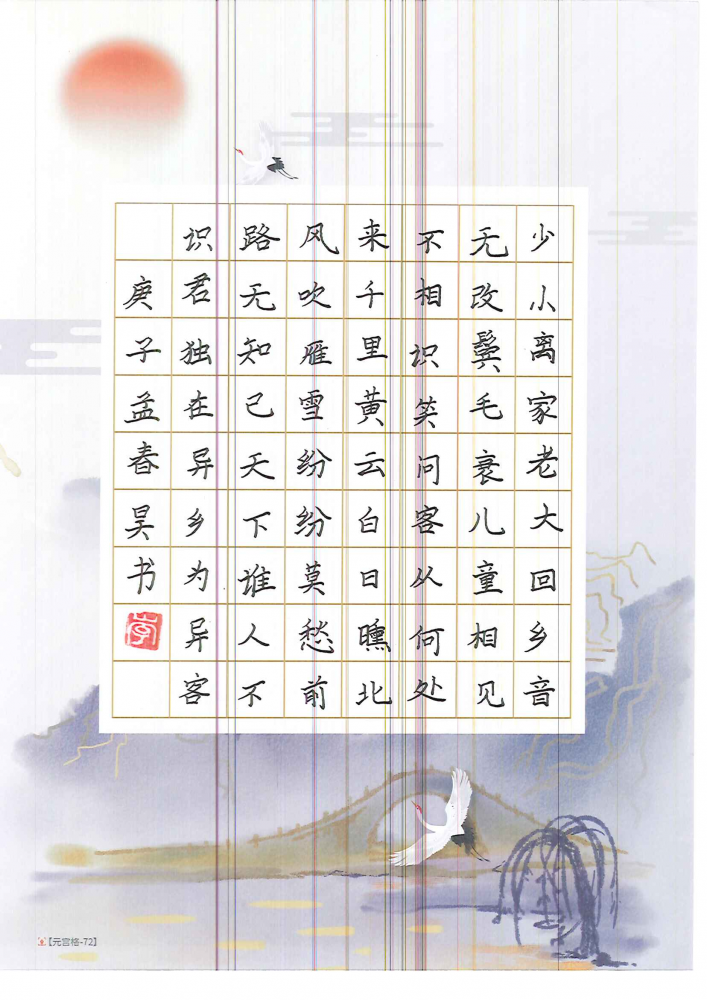 少小离家老大回乡音
无改鬓毛衰儿童相见
不相识笑问客从何处
来千里黄云白日曛北
风吹雁雪纷纷莫愁前
路无知己天下谁人不
识君独在异乡为异客
庚子孟春昊书
【元宫格-72】